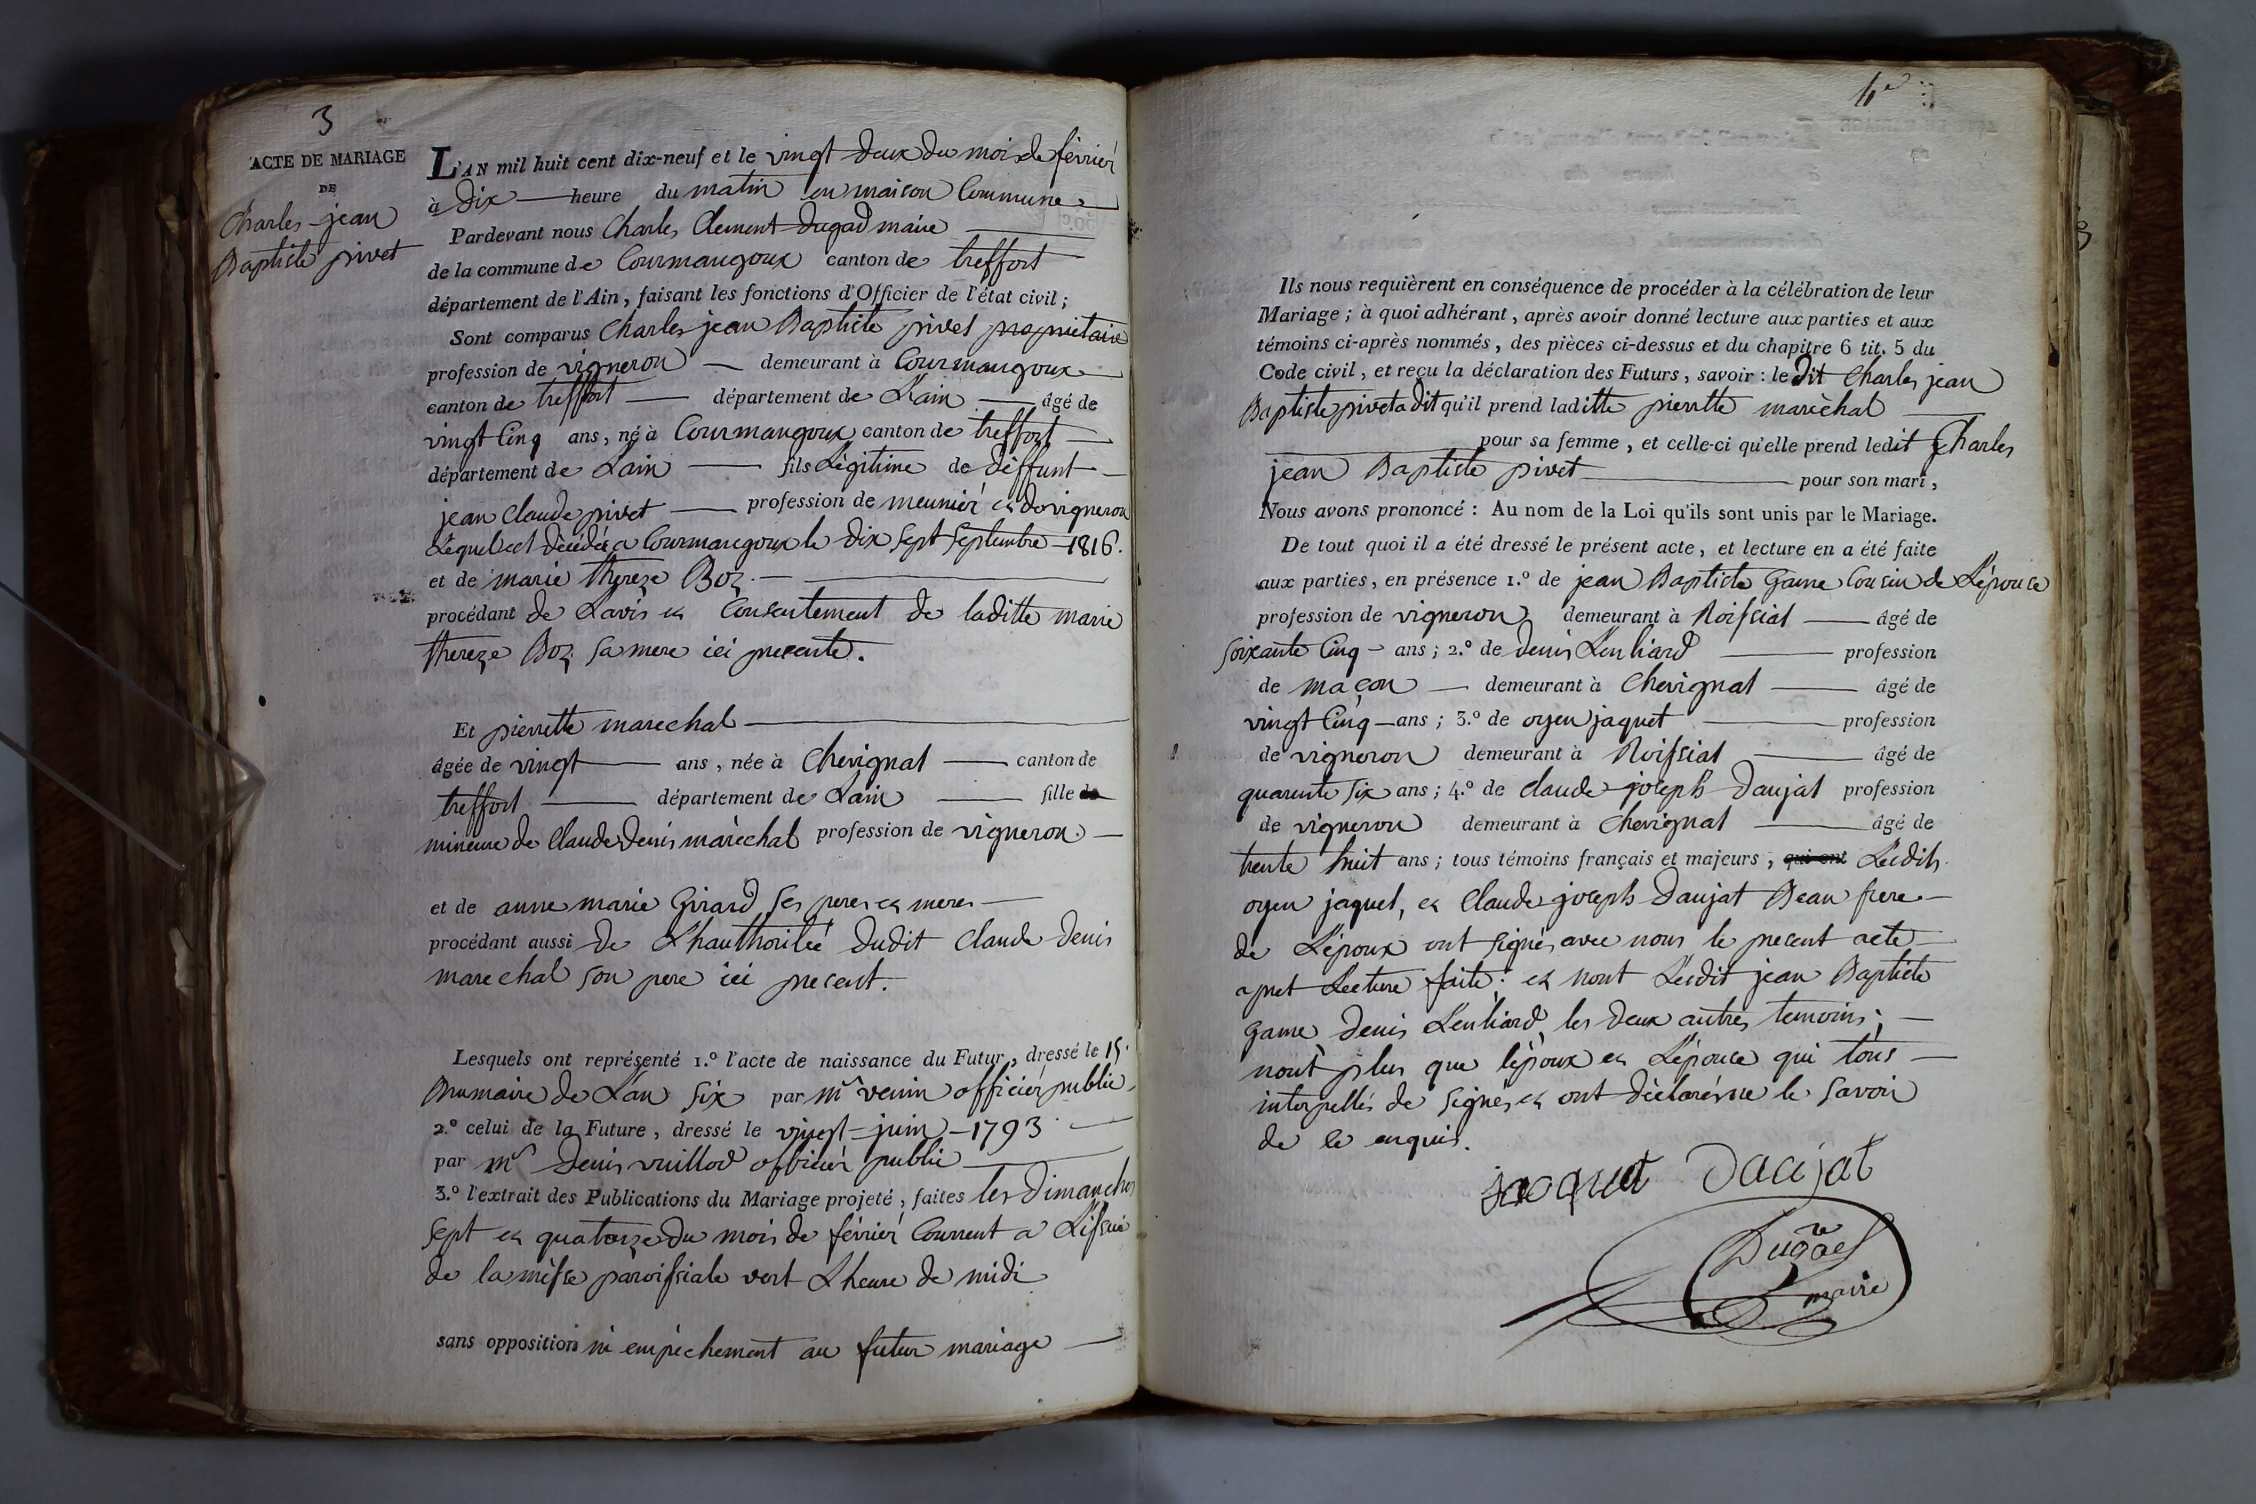 3
ACTE DE MARIAGE
DE
Charles jean
Baptiste pivet
L'AN mil huit cent dix-neuf et le vingt deux du mois de février
à dix heure du matin en maison Commune
Pardevant nous Charles Clement Dugad maire
de la commune de Courmangoux canton de treffort
département de l'Ain, faisant les fonctions d'Officier de l'état civil ;
Sont comparus Charles jean Baptiste pivet propriétaire
profession de vigneron demeurant à Courmangoux
canton de treffort département de L'ain âgé de
vingt Cinq ans, né à Courmangoux canton de treffort
département de L'ain fils Légitime de deffunt
jean Claude pivet profession de meunier et de vigneron
Lequel est décédé a Courmangoux le dix sept Septembre 1816.
et de marie thereze Boz
procédant de Lavis et Consentement de laditte marie
thereze Boz sa mere ici presente.
Et pierrette marechal
âgée de vingt ans, née à Chevignat canton de
treffort département de L'ain fille de
mineure de Claude Denis maréchal profession de vigneron
et de anne marie Girard ses peres et meres
procédant aussi de L'hauthorité dudit Claude Denis
marechal son pere ici present.
Lesquels ont représenté 1.º l'acte de naissance du Futur, dressé le 15.
Brumaire de L'an six par mr venin officier public
2.º celui de la Future, dressé le vingt juin 1793
par mr Denis vuillod officier public
3.º l'extrait des Publications du Mariage projeté, faites les Dimanches
sept et quatorze du mois de février Courrent a L'issue
de la messe paroissiale vert L'heure de midi
sans opposition ni empèchement au futur mariage
4e
Ils nous requièrent en conséquence de procéder à la célébration de leur
Mariage ; à quoi adhérant, après avoir donné lecture aux parties et aux
témoins ci-après nommés, des pièces ci-dessus et du chapitre 6 tit. 5 du
Code civil, et reçu la déclaration des Futurs, savoir : le dit Charles jean
Baptiste pivet a dit qu'il prend laditte pierrette maréchal
pour sa femme, et celle-ci qu'elle prend ledit Charles
jean Baptiste pivet pour son mari,
Nous avons prononcé : Au nom de la Loi qu'ils sont unis par le Mariage.
De tout quoi il a été dressé le présent acte, et lecture en a été faite
aux parties, en présence 1.º de jean Baptiste Game Cousin de L'épouse
profession de vigneron demeurant à Roissiat âgé de
soixante Cinq ans ; 2.º de Denis Lenliard profession
de maçon demeurant à Chevignat âgé de
vingt Cinq ans ; 3.º de oyen jaquet profession
de vigneron demeurant à Roissiat âgé de
quarente six ans ; 4.º de Claude joseph Daujat profession
de vigneron demeurant à Chevignat âgé de
trente huit ans ; tous témoins français et majeurs, qui ont Lesdits
oyen jaquet, et Claude joseph Daujat Beau frere
de L'époux ont signés avec nous le present acte
apret Lecture faite : et nont Lesdit jean Baptiste
game, Denis Lenliard, les deux autres temoins ;
nont plus que l'époux et L'épouse qui tous
interpellés de signés et ont déclarés ne le savoir
de ce enquis.
jacquet Daujat
Dugad
maire